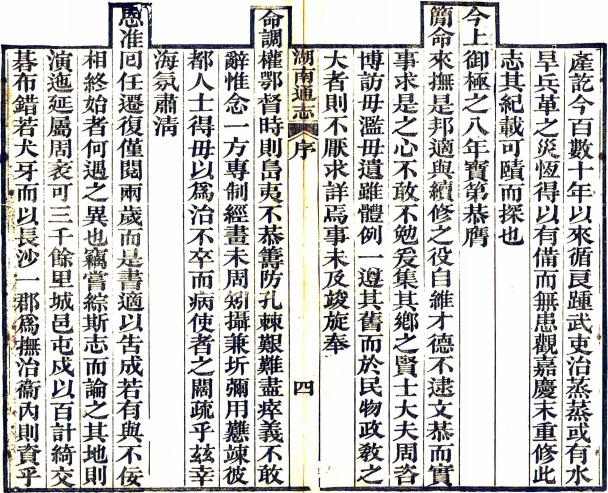 產訖今百數十年以來循良踵武吏治蒸蒸或有水
旱兵革之災恆得以有備而無患觀嘉慶末重修此
志其紀載可賾而探也
今上御極之八年寶第恭膺
簡命來撫是邦適與續修之役自維才德不逮文恭而實
事求是之心不敢不勉爰集其鄉之賢士大夫周咨
博訪毋濫毋遺雖體例一遵其舊而於民物政教之
大者則不厭求詳焉事未及竣旋奉
湖南通志 序 四
命調權鄂督時則島夷不恭籌防孔棘艱難盡瘁義不敢
辭惟念一方專制經畫未周矧攝兼圻彌用懸竦彼
都人士得毋以為治不卒而病使者之闊疏乎茲幸
海氛肅清
恩准回任還復僅閱兩歲而是書適以告成若有與不佞
相終始者何遇之異也竊嘗綜斯志而論之其地則
演迤延屬周袤可三千餘里城邑屯戍以百計綺交
碁布錯若犬牙而以長沙一郡為撫治衞內則資乎